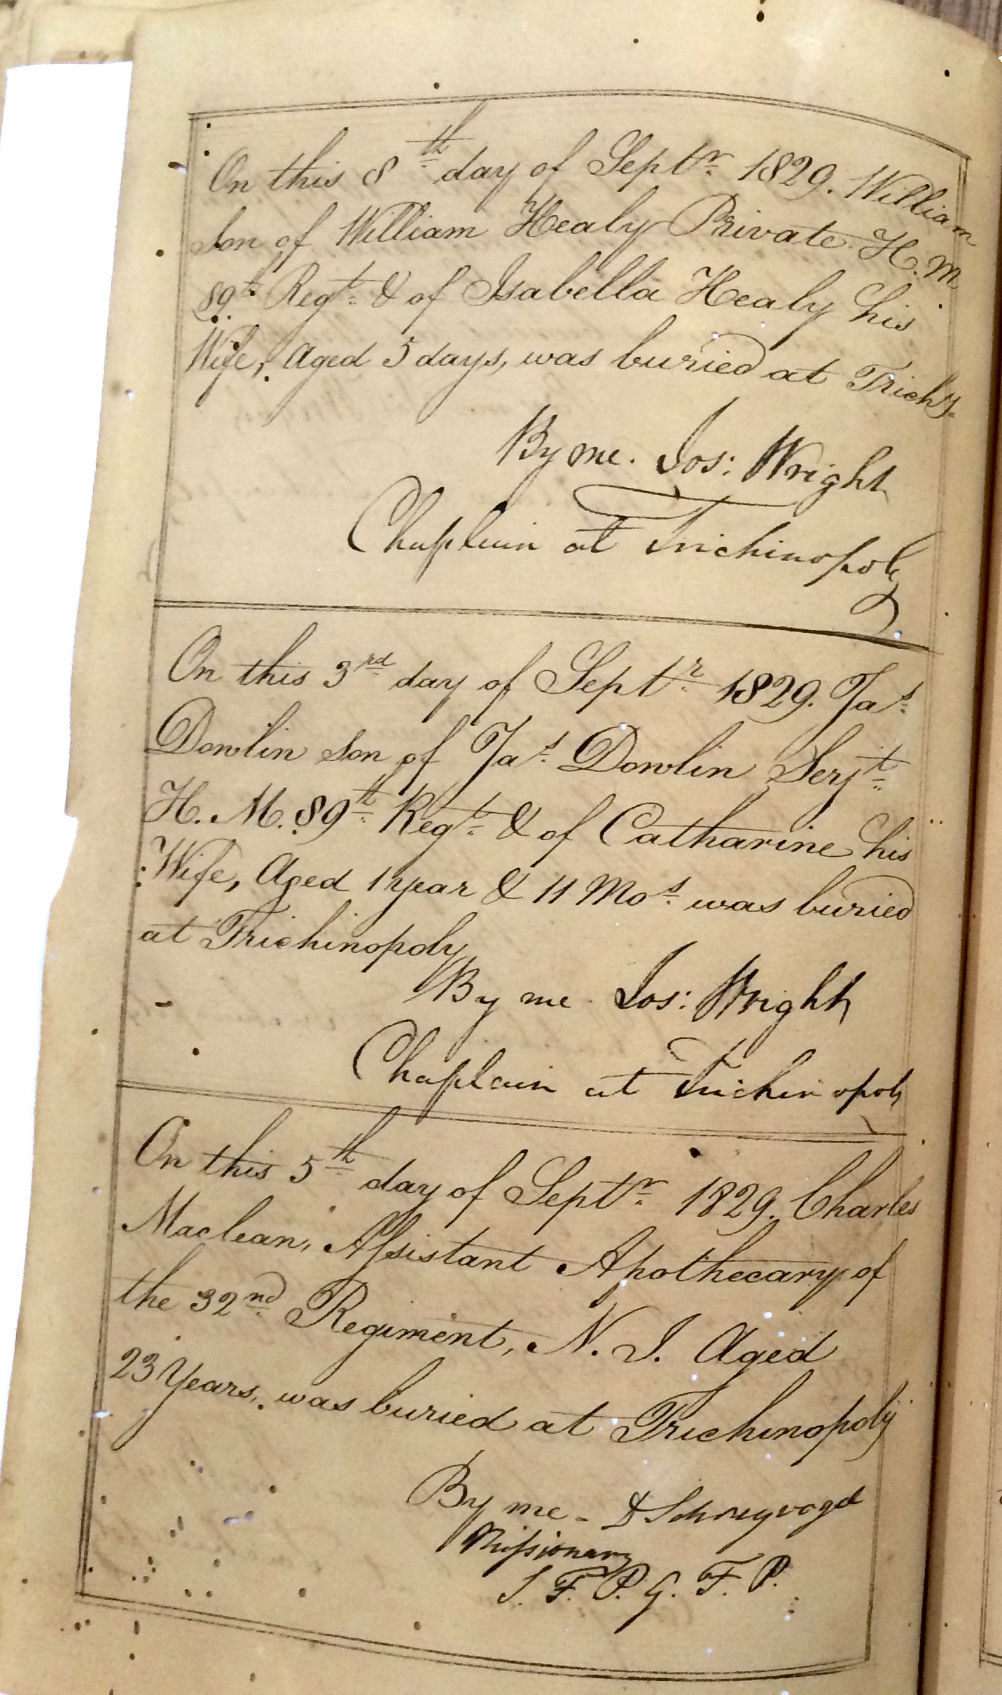 On this 8th day of Septr. 1829. William
Son of William Healy Private H. M.
89th Regt. & of Isabella Healy his
Wife, Aged 5 days, was buried at Trichy.
By me. Jos: Wright
Chaplain at Trichinopoly
On this 3rd day of Septr. 1829. Jas.
Dowlin Son of Jas. Dowlin Serjt.
H. M. 89th Regt. & of Catharine his
Wife, Aged 1 year & 11 Mos. was buried
at Trichinopoly
By me. Jos: Wright
Chaplain at Trichinopoly
On this 5th day of Septr. 1829. Charles
Maclean, Assistant Apothecary of
the 32nd Regiment, N. I. Aged
23 Years, was buried at Trichinopoly
By me - D Schreyvogel
Missionary
S. F. P. G. F. P.